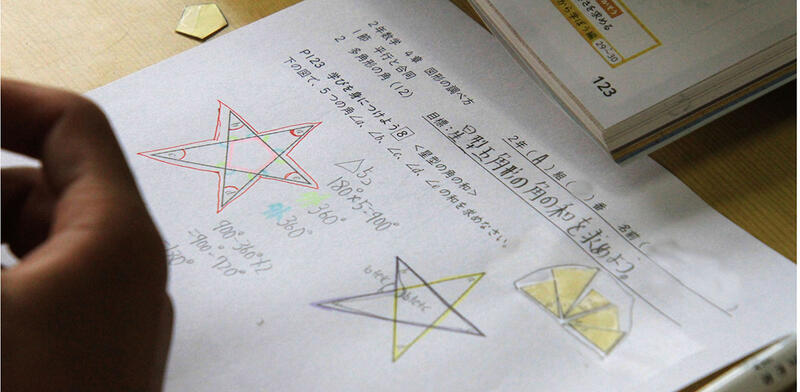 2年数学 4章 図形の調べ方
1節 平行と合同
2 多角形の角(12)
P123 学びを身につけよう8 <星型の角の和>
下の図で、5つの角∠a、∠b、∠c、∠d、∠eの和を求めなさい。
2年(A)組( )番 名前(
目標:星型五角形の角の和を求めよう。
△5つ
180°×5=900°
外360°
360°
900-360×2
=900-720°
180°
b+e+c
さを求める
から学ぼう編
29~30
123